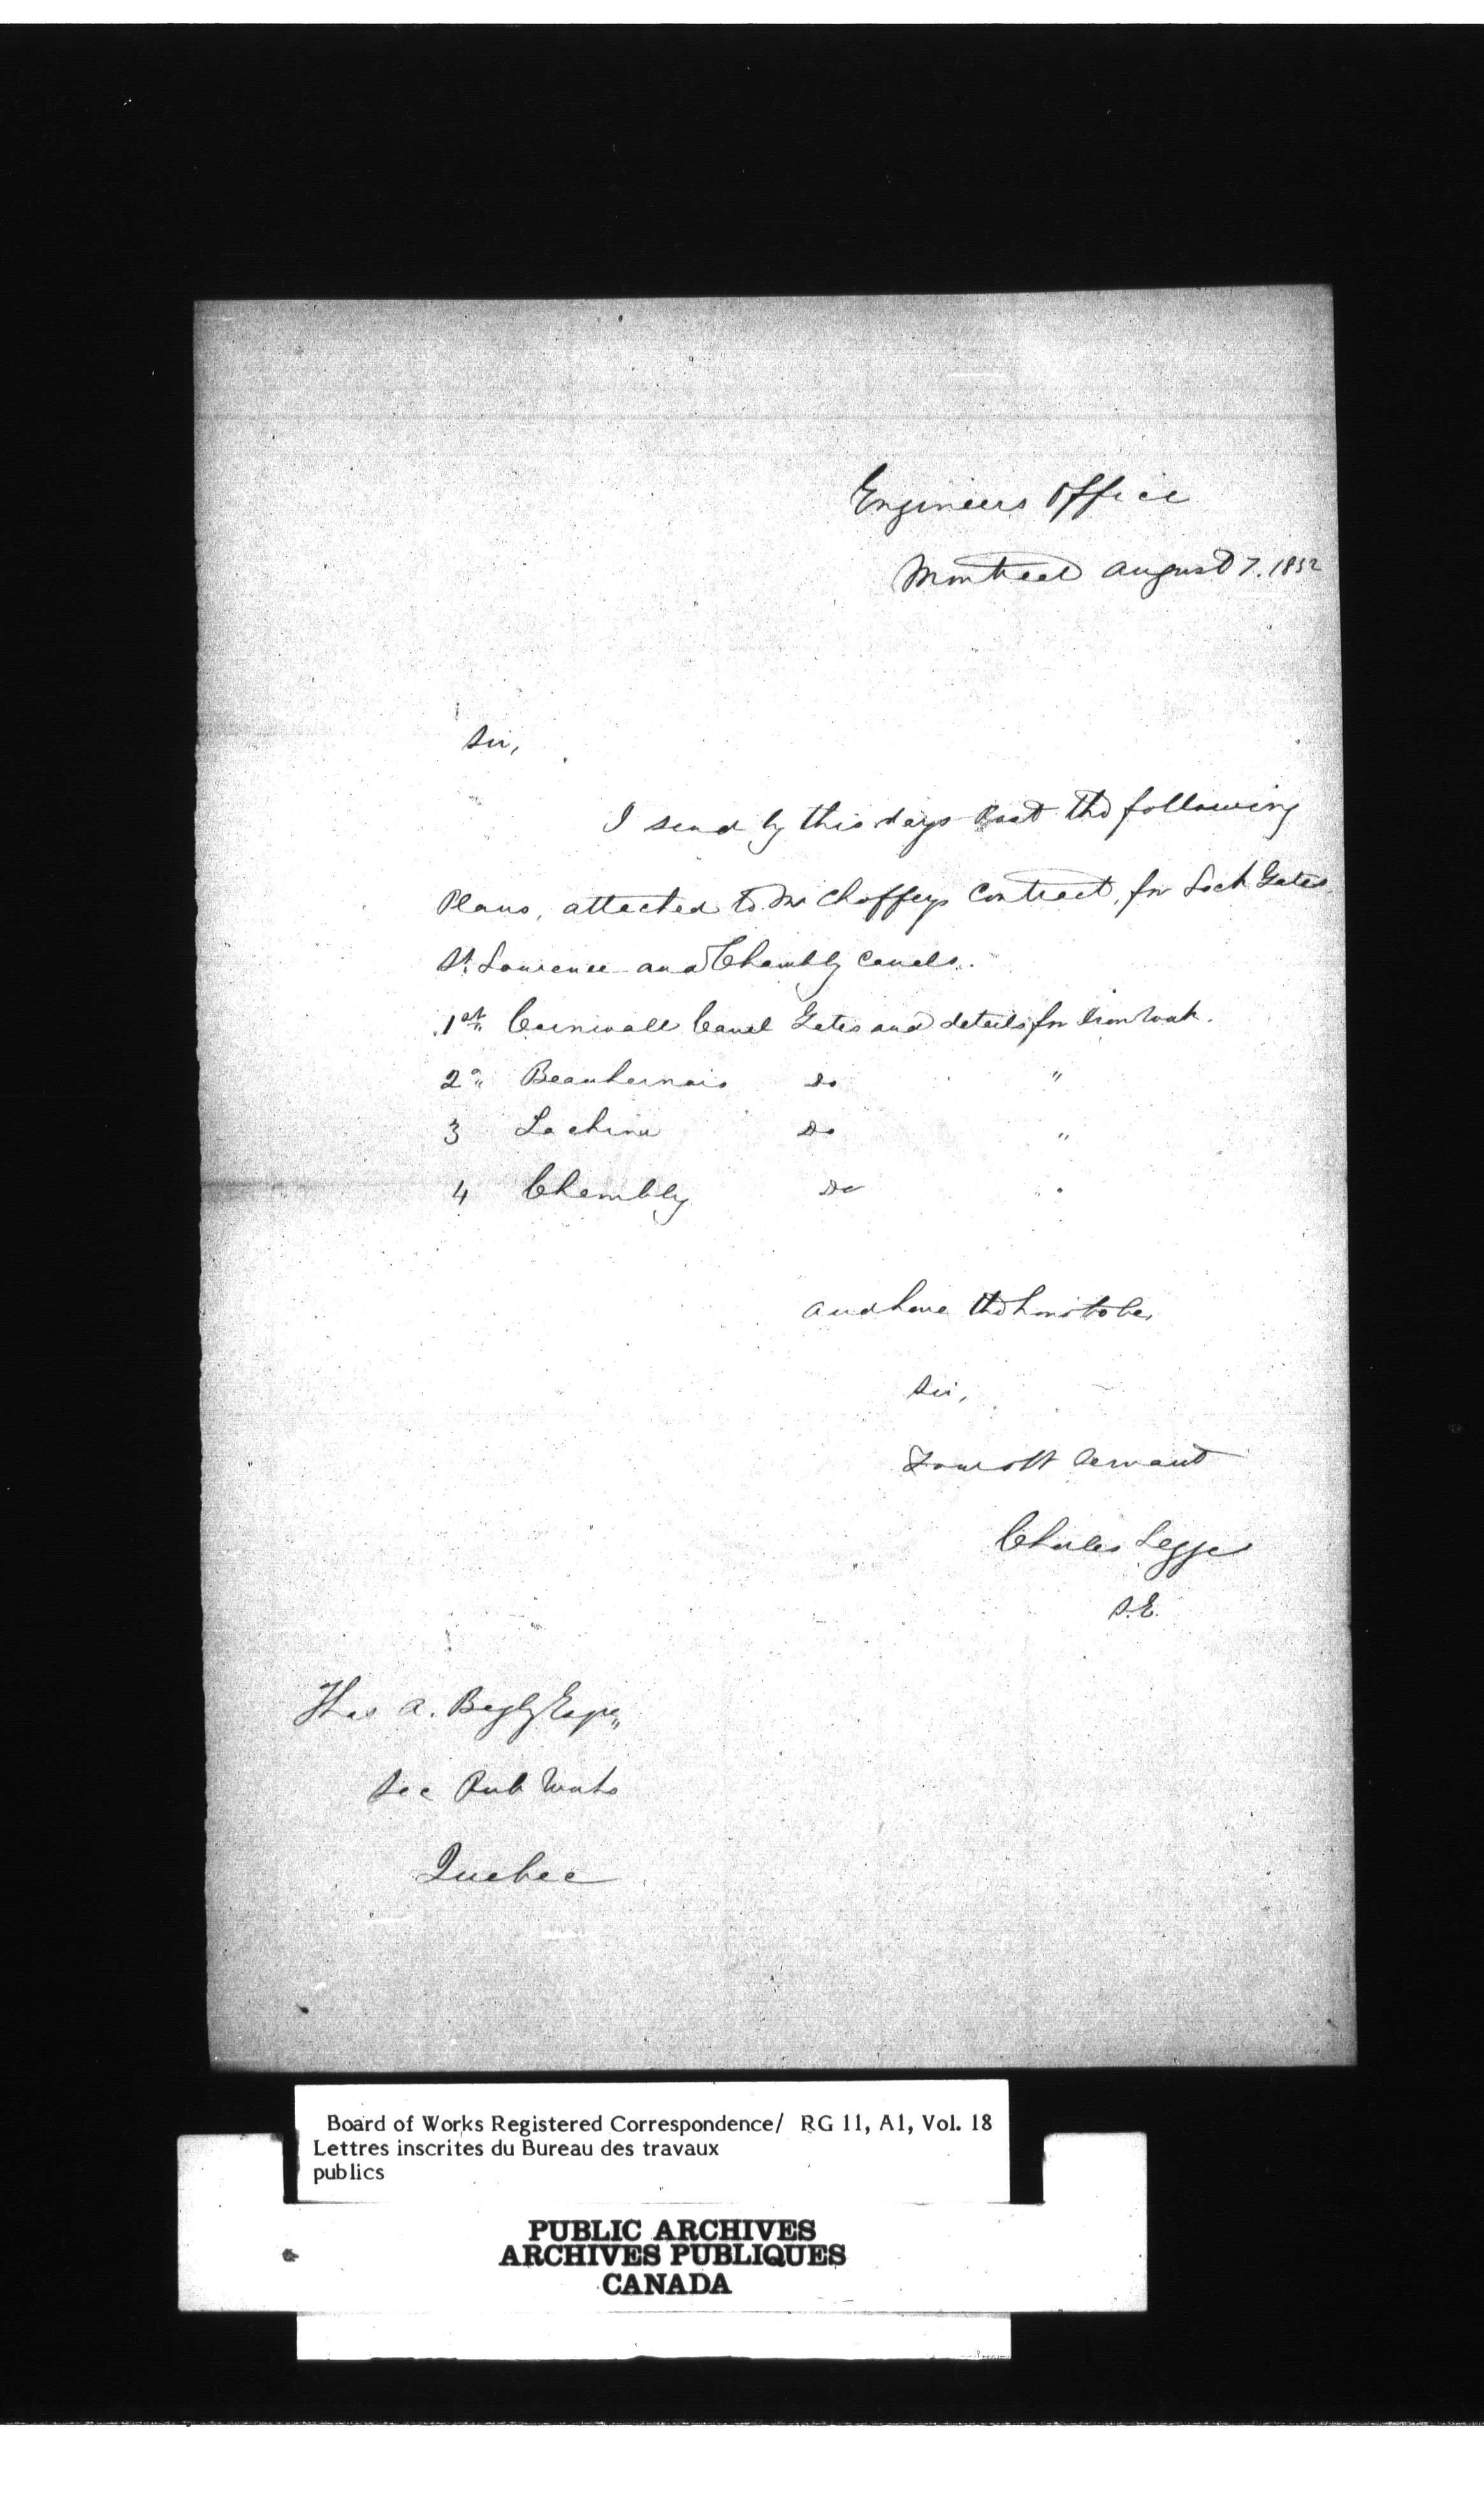 Engineers Office
Montreal August 7. 1852
Sir,
I send by this days Post the following
Plans, attached to Mr Chaffeys Contract, for Lock Gates
St. Lawrence and Chambly Canals.
1st Cornwall Canal Gates and details for Iron Work.
2d Beauharnois Do "
3 Lachine Do "
4 Chambly Do "
and have the honor to be,
Sir,
Your obt Servant
Charles Legge
S.E.
Thos A. Begly Esqre
Sec Pub Works
Quebec
Board of Works Registered Correspondence/ RG 11, A1, Vol. 18
Lettres inscrites du Bureau des travaux
publics
PUBLIC ARCHIVES
ARCHIVES PUBLIQUES
CANADA